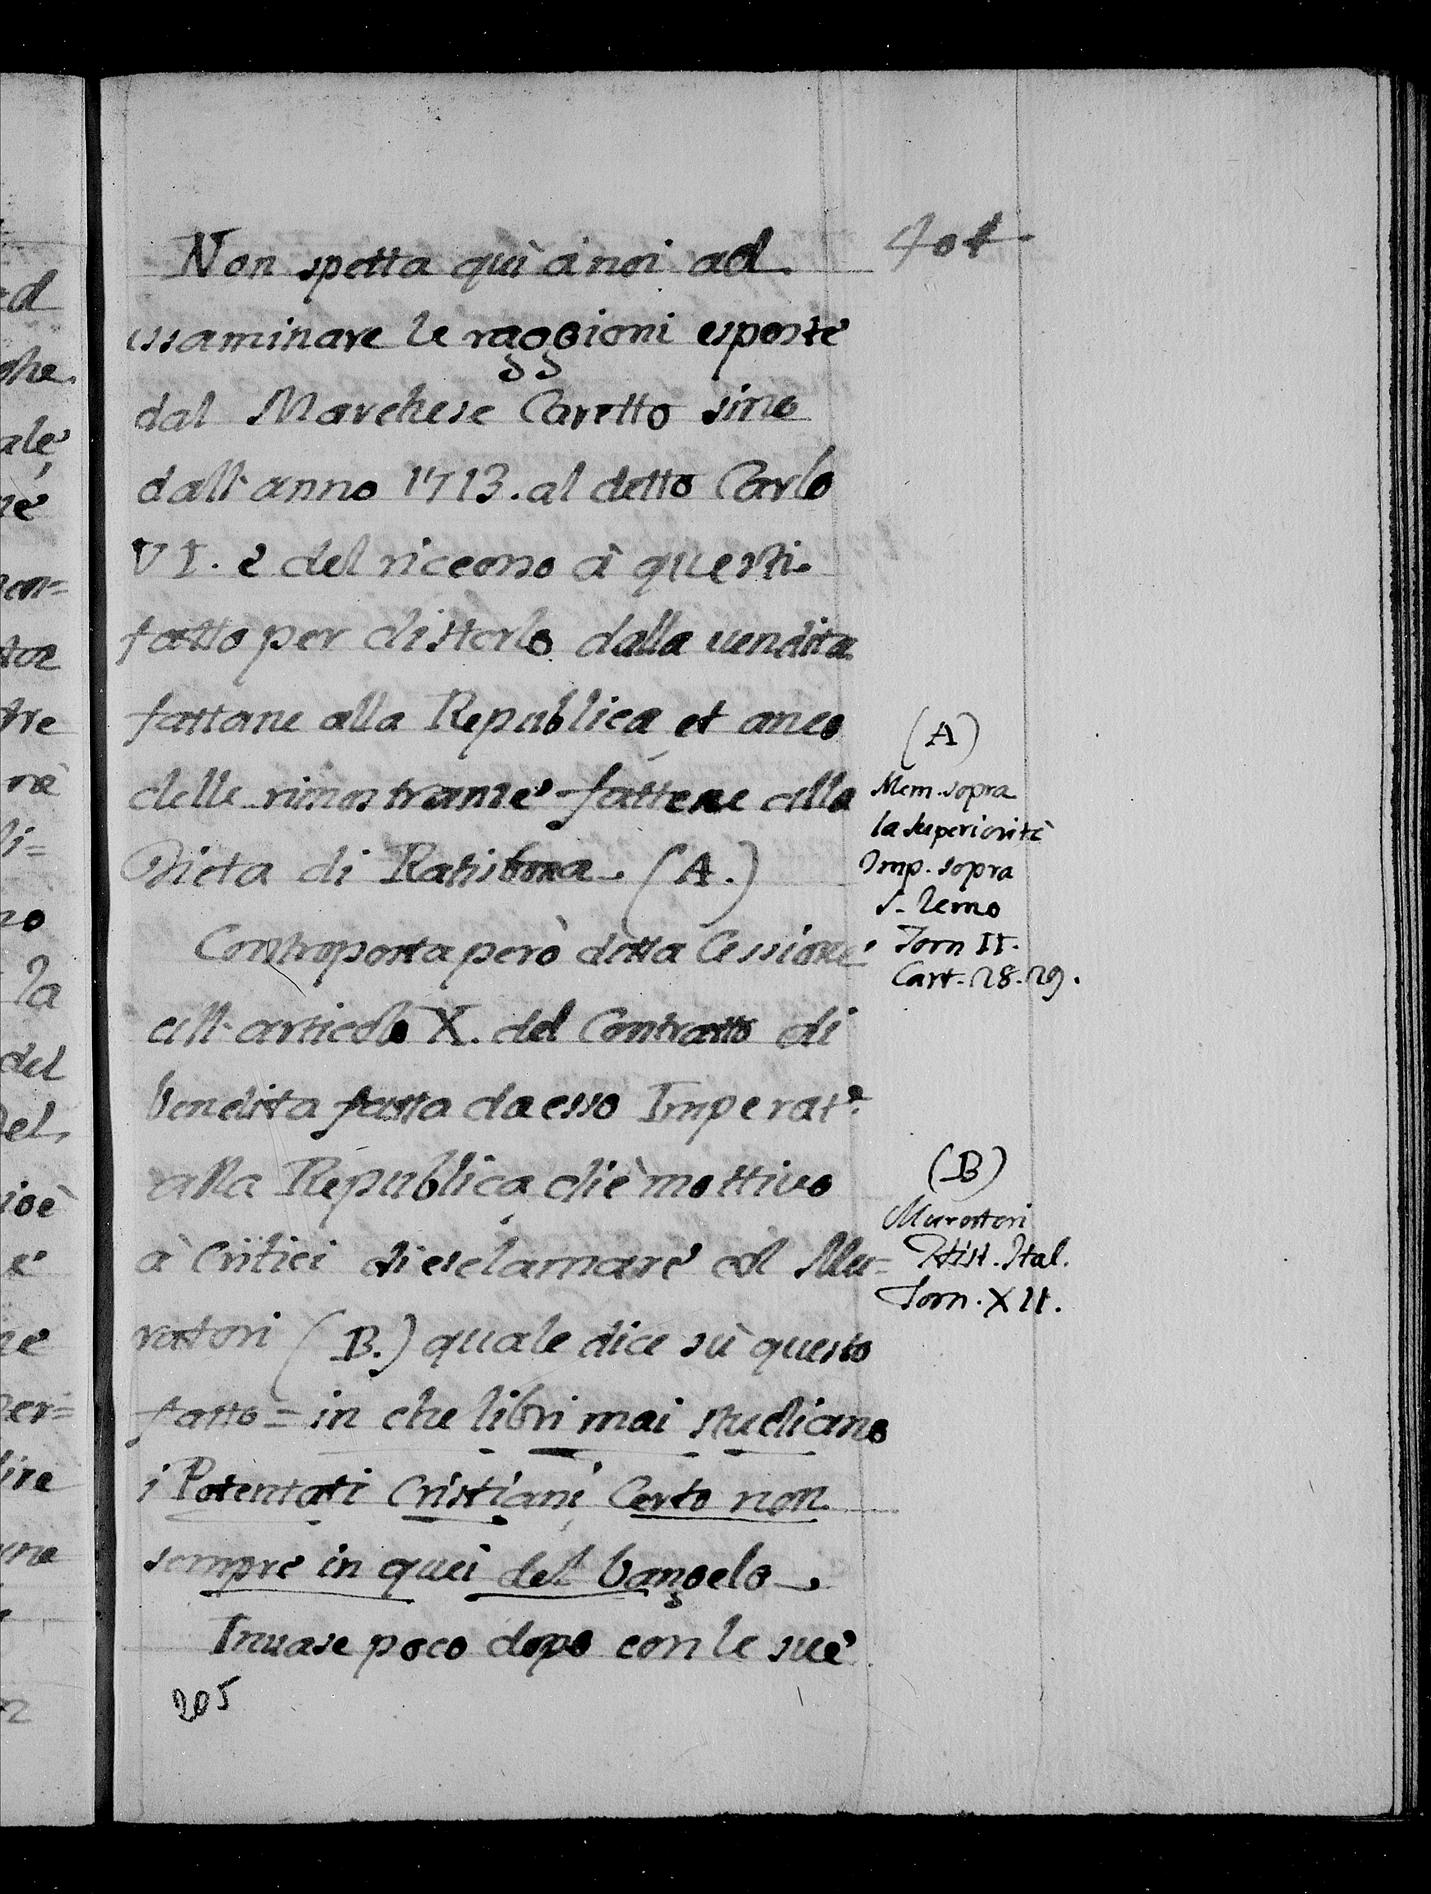 404
Non spetta quì à noi ad
essaminare le raggioni esposte
dal Marchese Caretto sino
dall'anno 1713. al detto Carlo
VI. e del ricorso à questi
fatto per distorlo dalla vendita
fattane alla Republica et anco
delle rimostranze fattene alla
Dieta di Ratisbona. (A.)
Contraposta però detta Cessione
all'articolo X. del Contratto di
vendita fatta da esso Imperat.e
alla Republica diè mottivo
à Critici di esclamare al Mu=
ratori (B.) quale dice sù questo
fatto = in che libri mai studiano
i Potentati Cristiani Certo non
sempre in quei del Vangelo.
Invase poco dopo con le sue
205
(A)
Mem. sopra
la superiorità
Imp. sopra
S. Remo
Tom II.
Cart. 28. 29.
(B)
Muratori
Hist. Ital.
Tom. XII.